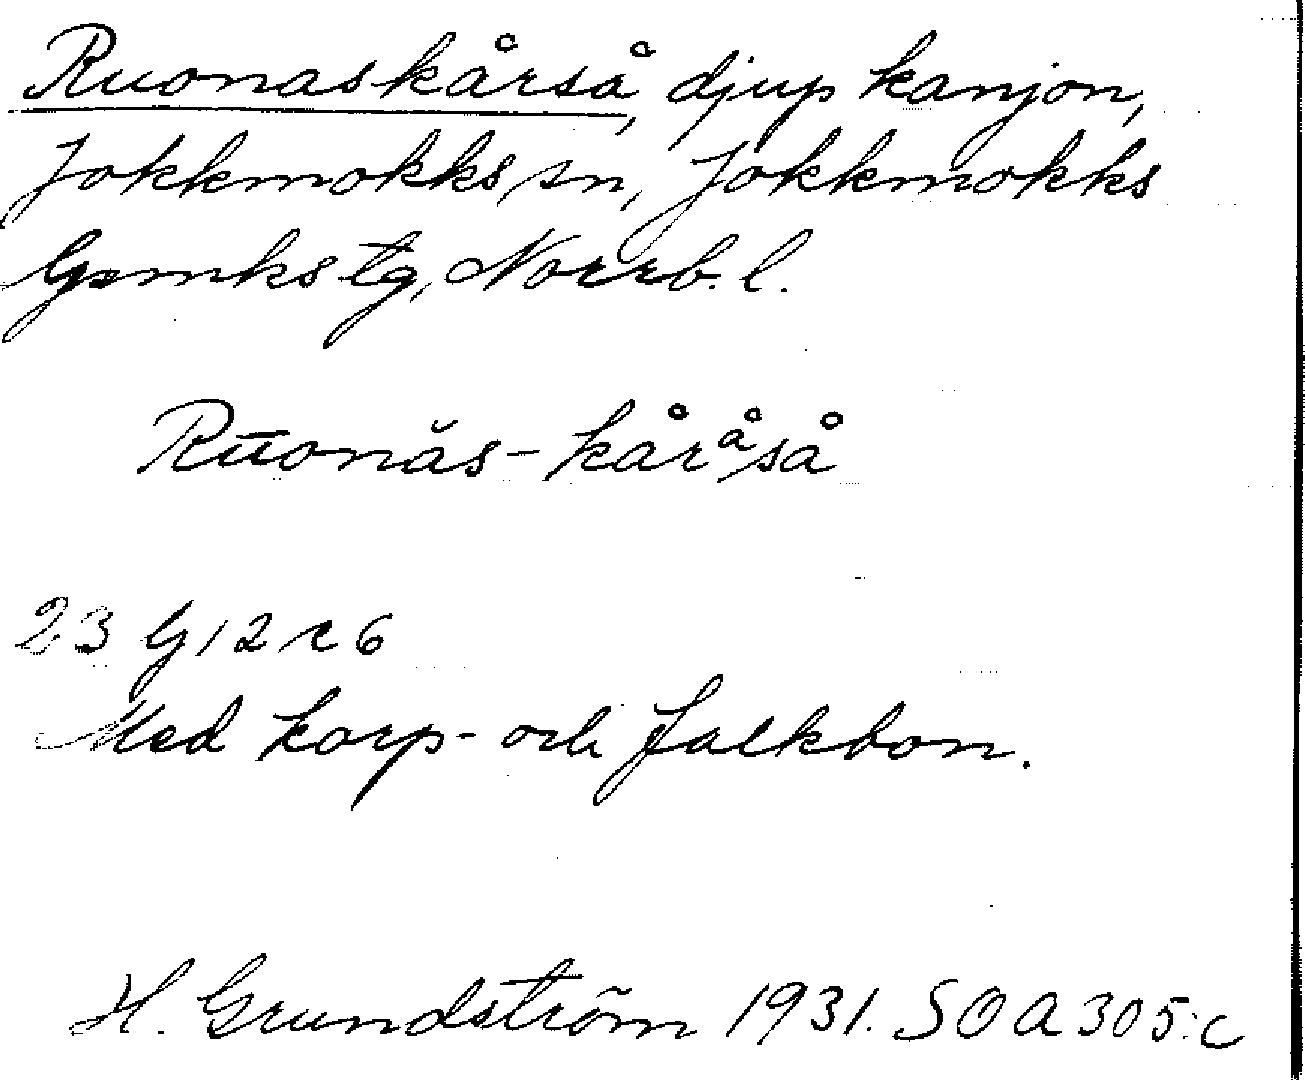 Ruonaskårså, djup kanjon,
Jokkmokks sn, Jokkmokks
Gsmks tg, Norrb. l.
Rūonăs-kåråså
23 G 12 r 6
Med korp- och falkbon.
H. Grundström 1931. SOA 305:c